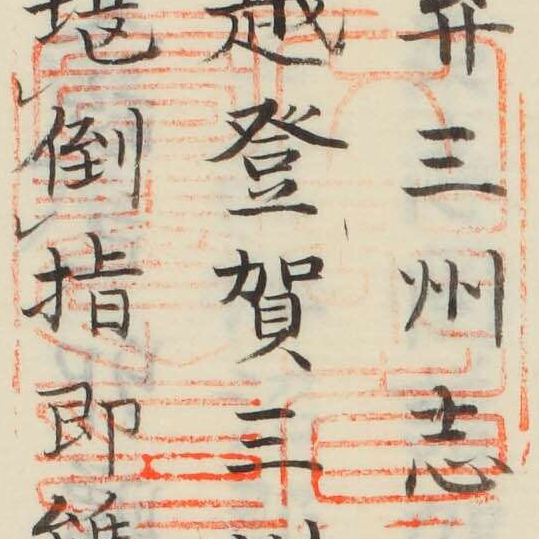 弁三州志
越登賀三
倒指即